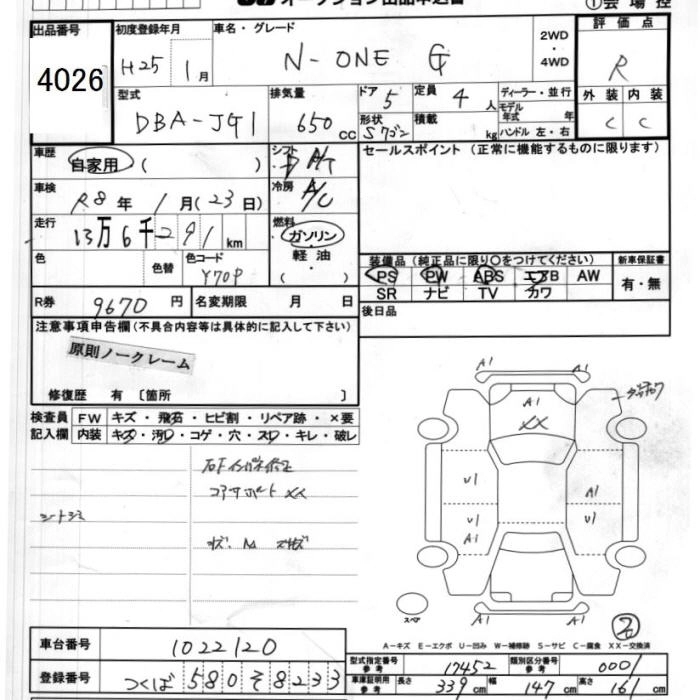 オークション出品申込書
①会場控
出品番号 4026
初度登録年月 H25 1月
車名・グレード N-ONE G
2WD・4WD
評価点 R
型式 DBA-JG1
排気量 650 cc
ドア 5 形状 5
定員 4人 積載 kg
ディーラー・並行
モデル年式 年
ハンドル 左・右
外装 内装
C C
車歴 自家用 ( )
シフト AT
セールスポイント (正常に機能するものに限ります)
車検 R8年 1月(23日)
冷房 A/C
走行 13万6千291km
燃料 ガソリン 軽油 ( )
色 色替 色コード Y70P
装備品 (純正品に限り○をつけてください)
新車保証書
PS PW ABS エアB AW
有・無
SR ナビ TV カワ
R券 9670円 名変期限 月 日
後日品
注意事項申告欄 (不具合内容等は具体的に記入して下さい)
原則ノークレーム
修復歴 有 〔箇所 〕
検査員記入欄
FW キズ・飛石・ヒビ割・リペア跡・×要
内装 キズ・汚レ・コゲ・穴・スレ・キレ・破レ
コアサポート XX
A1 A1
A1
XX
U1
A1
U1
U1
A1
A1 A1
スペア
A-キズ E-エクボ U-凹み W-補修跡 S-サビ C-腐食 XX-交換済
車台番号 1022120
登録番号 つくば 580 そ 8233
型式指定番号 参考 17452
類別区分番号 参考 0001
車庫証明用 参考 長さ 339cm 幅 147cm 高さ 161cm